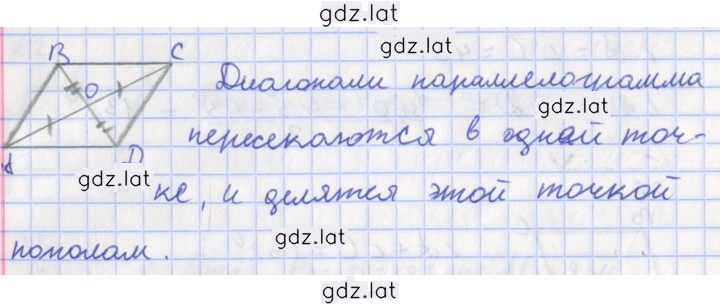 gdz.lat
B C gdz.lat
O Диагонали параллелограмма
gdz.lat
пересекаются в одной точ-
A D
gdz.lat
ке, и делятся этой точкой
gdz.lat
пополам.
gdz.lat